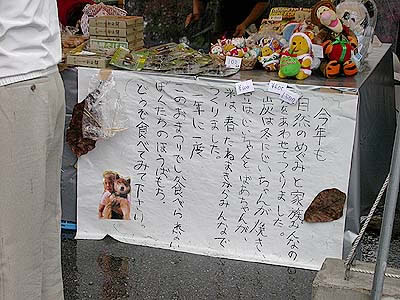 今年も
自然のめぐみと家族みんなの
をあわせてつくりました。
炭は冬にじいちゃんが焼き
はじいちゃんとばあちゃんが、
米は、春にたねまきからみんなで
つくりました。
年に一度
このおまつりでしか食べられない
ばんたろのほうばもち。
どうぞ食べてみて下さい。